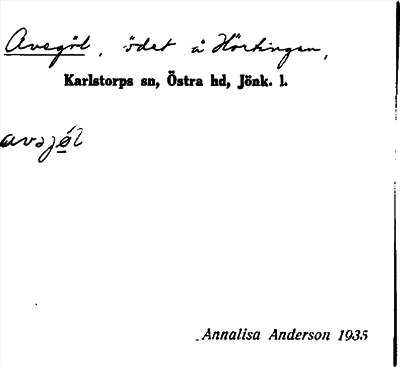 Avegöl, ödet å Hörtingen,
Karlstorps sn, Östra hd, Jönk. l.
avəjǿ̱l
Annalisa Anderson 1935